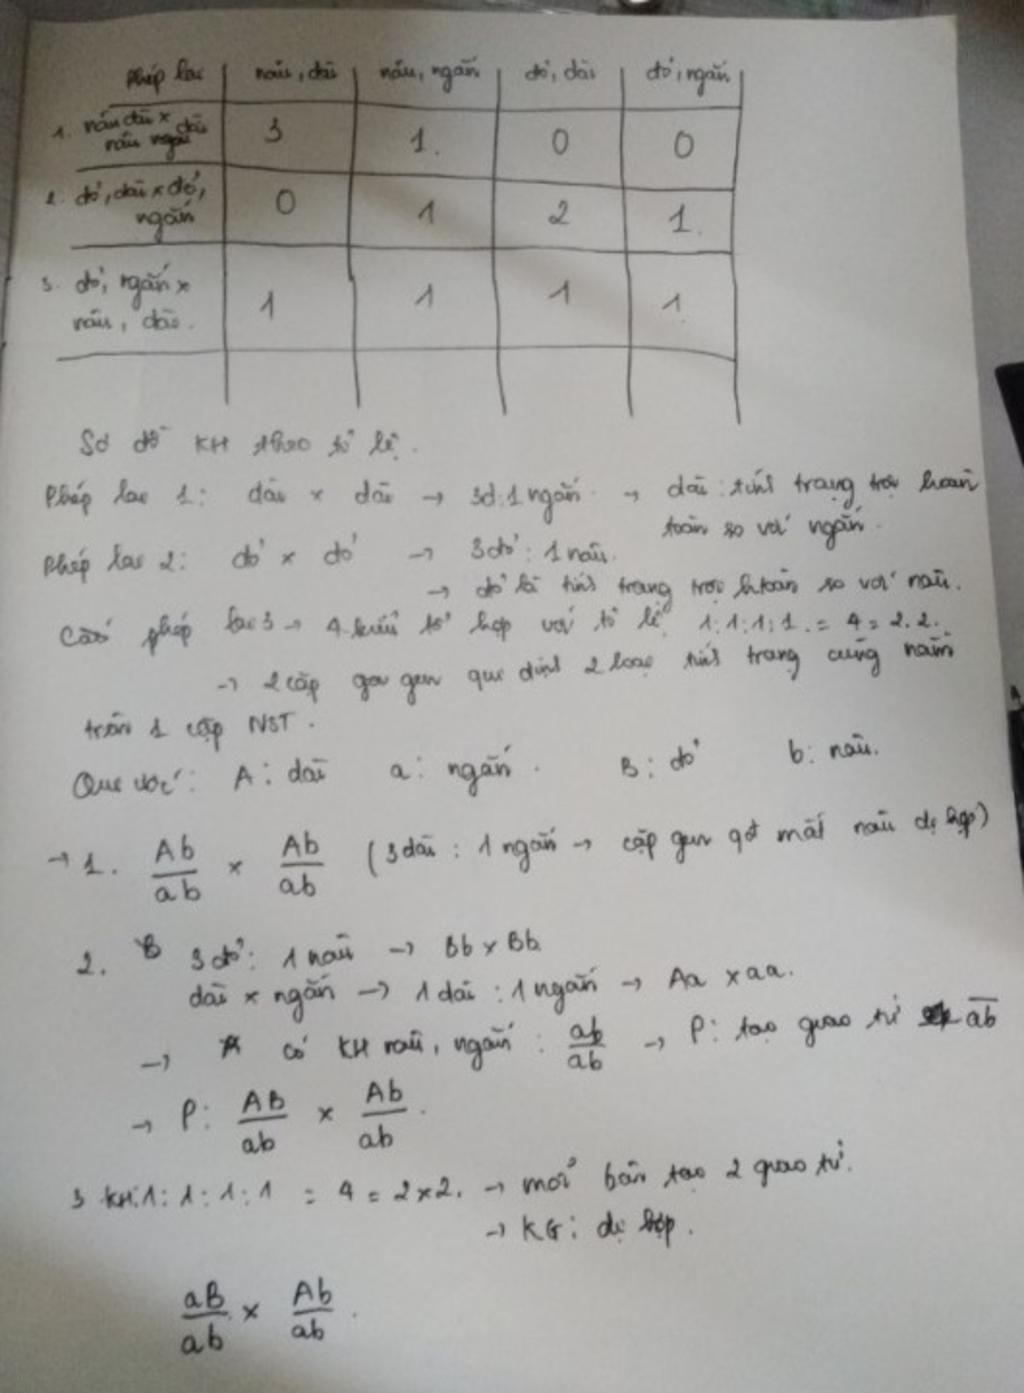 Phép lai | nâu, dài | nâu, ngắn | đỏ, dài | đỏ, ngắn
1. nâu dài × nâu dài | 3 | 1 | 0 | 0
2. đỏ, dài × đỏ, ngắn | 0 | 1 | 2 | 1
3. đỏ, ngắn × nâu, dài. | 1 | 1 | 1 | 1
Sơ đồ KH theo tỉ lệ.
Phép lai 1: dài × dài → 3d:1 ngắn → dài: tính trạng trội hoàn
toàn so với ngắn.
Phép lai 2: đỏ × đỏ → 3 đỏ: 1 nâu.
→ đỏ là tính trạng trội hoàn so với nâu.
phép lai 3 → 4 kiểu tổ hợp với tỉ lệ 1:1:1:1. = 4 = 2.2.
→ 2 cặp gen quy định 2 loại tính trạng cùng nằm
trên 1 cặp NST.
Quy ước: A: dài a: ngắn. B: đỏ b: nâu.
→ 1. Ab/ab × Ab/ab (3 dài: 1 ngắn → cặp gen qđ mắt nâu dị hợp)
2. 3 đỏ: 1 nâu → Bb × Bb
dài × ngắn → 1 dài: 1 ngắn → Aa × aa.
→ có KH nâu, ngắn: ab/ab → P: tạo giao tử ab
→ P: AB/ab × Ab/ab.
3 KH: 1:1:1:1 = 4 = 2×2. → mỗi bên tạo 2 giao tử.
→ KG: dị hợp.
aB/ab × Ab/ab.